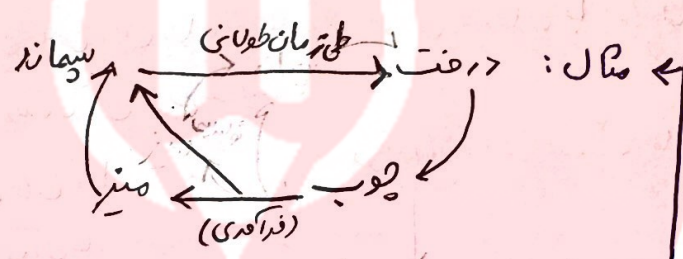 ← مثال : درخت طی زمان طولانی پسماند
چوب میز
(فرآمدی)